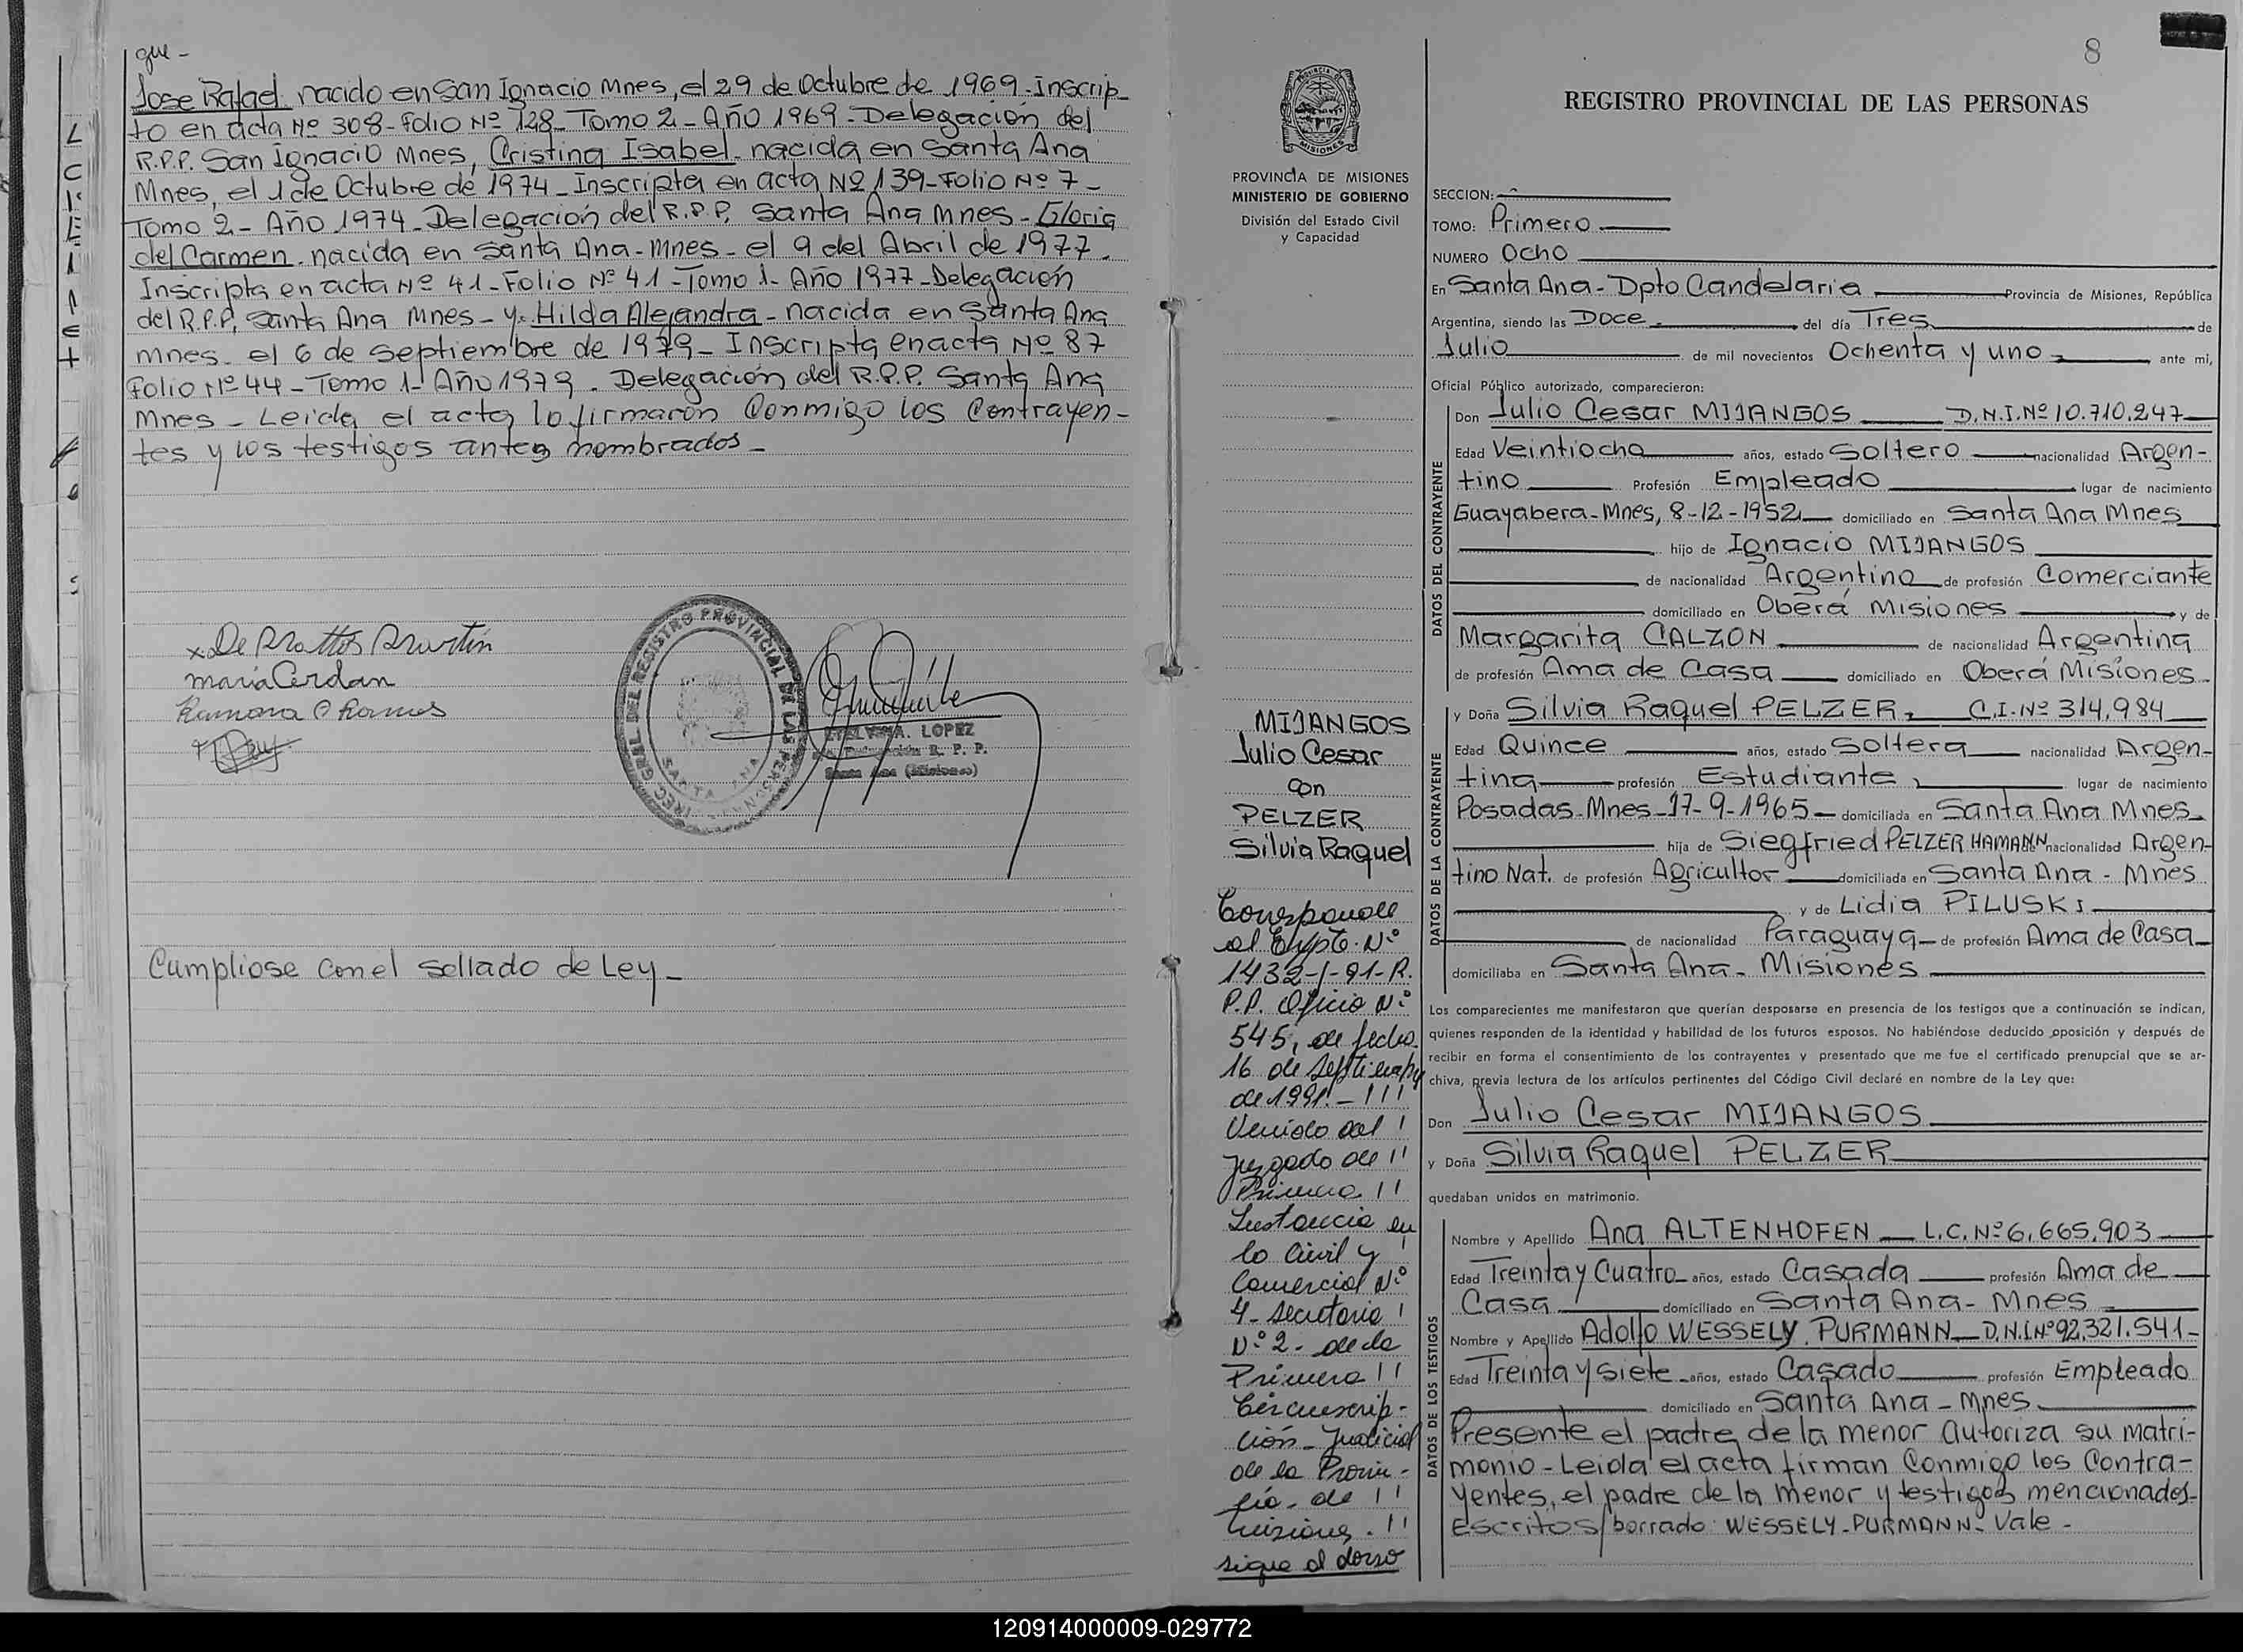 que-
Jose Rafael nacido en San Ignacio Mnes, el 29 de Octubre de 1969-Inscrip-
to en acta Nº 308-Folio Nº 128-Tomo 2-Año 1969-Delegación del
R.P.P. San Ignacio Mnes, Cristina Isabel-nacida en Santa Ana
Mnes, el 1 de Octubre de 1974-Inscripta en acta Nº 139-Folio Nº 7-
Tomo 2-Año 1974-Delegación del R.P.P. Santa Ana Mnes-Gloria
del Carmen-nacida en Santa Ana-Mnes-el 9 del Abril de 1977.
Inscripta en acta Nº 41-Folio Nº 41-Tomo 1-Año 1977-Delegación
del R.P.P. Santa Ana Mnes-y Hilda Alejandra-nacida en Santa Ana
Mnes-el 6 de Septiembre de 1979-Inscripta en acta Nº 87
Folio Nº 44-Tomo 1-Año 1979. Delegación del R.P.P. Santa Ana
Mnes-Leida el acta lo firmaron Conmigo los Contrayen-
tes y los testigos antes nombrados-
x De Mattos Martin
maria Cerdan
Ramona Ramos
REGISTRO PROVINCIAL DE LAS PERSONAS
SANTA ANA
A. LOPEZ
R. P. P.
Santa Ana (Misiones)
Cumpliose con el sellado de Ley-
8
PROVINCIA DE MISIONES
MINISTERIO DE GOBIERNO
División del Estado Civil
y Capacidad
MIJANGOS
Julio Cesar
con
PELZER
Silvia Raquel
Corresponde
al Expte. Nº
1432-/-91-R.
P.P. Oficio Nº
545, de fecha
16 de Septiembre
de 1991.-!!!
Venido del !
Juzgado de !!
Primera !!
Instancia en
lo Civil y !
Comercial Nº
4-Secretaria !
Nº 2-de la
Primera !!
Circunscrip-
ción-Judicial
de la Provin-
cia-de !!
Misiones.!!
sigue al dorso
REGISTRO PROVINCIAL DE LAS PERSONAS
SECCION:
TOMO: Primero
NUMERO Ocho
En Santa Ana-Dpto Candelaria Provincia de Misiones, República
Argentina, siendo las Doce del día Tres de
Julio de mil novecientos Ochenta y uno ante mi,
Oficial Público autorizado, comparecieron:
DATOS DEL CONTRAYENTE
Don Julio Cesar MIJANGOS D.N.I.Nº 10.710.247
Edad Veintiocho años, estado Soltero nacionalidad Argen-
tino Profesión Empleado lugar de nacimiento
Guayabera-Mnes, 8-12-1952 domiciliado en Santa Ana Mnes
hijo de Ignacio MIJANGOS
de nacionalidad Argentino de profesión Comerciante
domiciliado en Oberá Misiones y de
Margarita CALZON de nacionalidad Argentina
de profesión Ama de Casa domiciliado en Oberá Misiones
DATOS DE LA CONTRAYENTE
y Doña Silvia Raquel PELZER, C.I.Nº 314.984
Edad Quince años, estado Soltera nacionalidad Argen-
tina profesión Estudiante lugar de nacimiento
Posadas-Mnes-17-9-1965 domiciliada en Santa Ana Mnes
hija de Siegfried PELZER HAMANN nacionalidad Argen-
tino Nat. de profesión Agricultor domiciliada en Santa Ana-Mnes
y de Lidia PILUSKI
de nacionalidad Paraguaya de profesión Ama de Casa
domiciliaba en Santa Ana-Misiones
Los comparecientes me manifestaron que querían desposarse en presencia de los testigos que a continuación se indican,
quienes responden de la identidad y habilidad de los futuros esposos. No habiéndose deducido oposición y después de
recibir en forma el consentimiento de los contrayentes y presentado que me fue el certificado prenupcial que se ar-
chiva, previa lectura de los artículos pertinentes del Código Civil declaré en nombre de la Ley que:
Don Julio Cesar MIJANGOS
y Doña Silvia Raquel PELZER
quedaban unidos en matrimonio.
DATOS DE LOS TESTIGOS
Nombre y Apellido Ana ALTENHOFEN L.C.Nº 6.665.903
Edad Treinta y Cuatro años, estado Casada profesión Ama de
Casa domiciliado en Santa Ana-Mnes
Nombre y Apellido Adolfo WESSELY PURMANN D.N.I.Nº 92.321.541-
Edad Treinta y siete años, estado Casado profesión Empleado
domiciliado en Santa Ana-Mnes
Presente el padre de la menor autoriza su matri-
monio-Leida el acta firman Conmigo los Contra-
yentes, el padre de la menor y testigos mencionados-
Escritos/borrado: WESSELY-PURMANN-Vale-
120914000009-029772